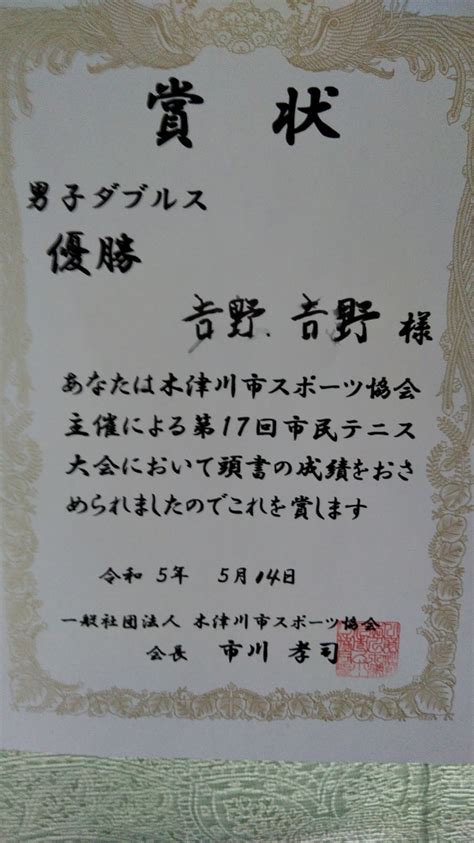 賞状
男子ダブルス
優勝
𠮷野、𠮷野 様
あなたは木津川市スポーツ協会
主催による第17回市民テニス
大会において頭書の成績をおさ
められましたのでこれを賞します
令和 5年 5月14日
一般社団法人 木津川市スポーツ協会
会長 市川 孝司